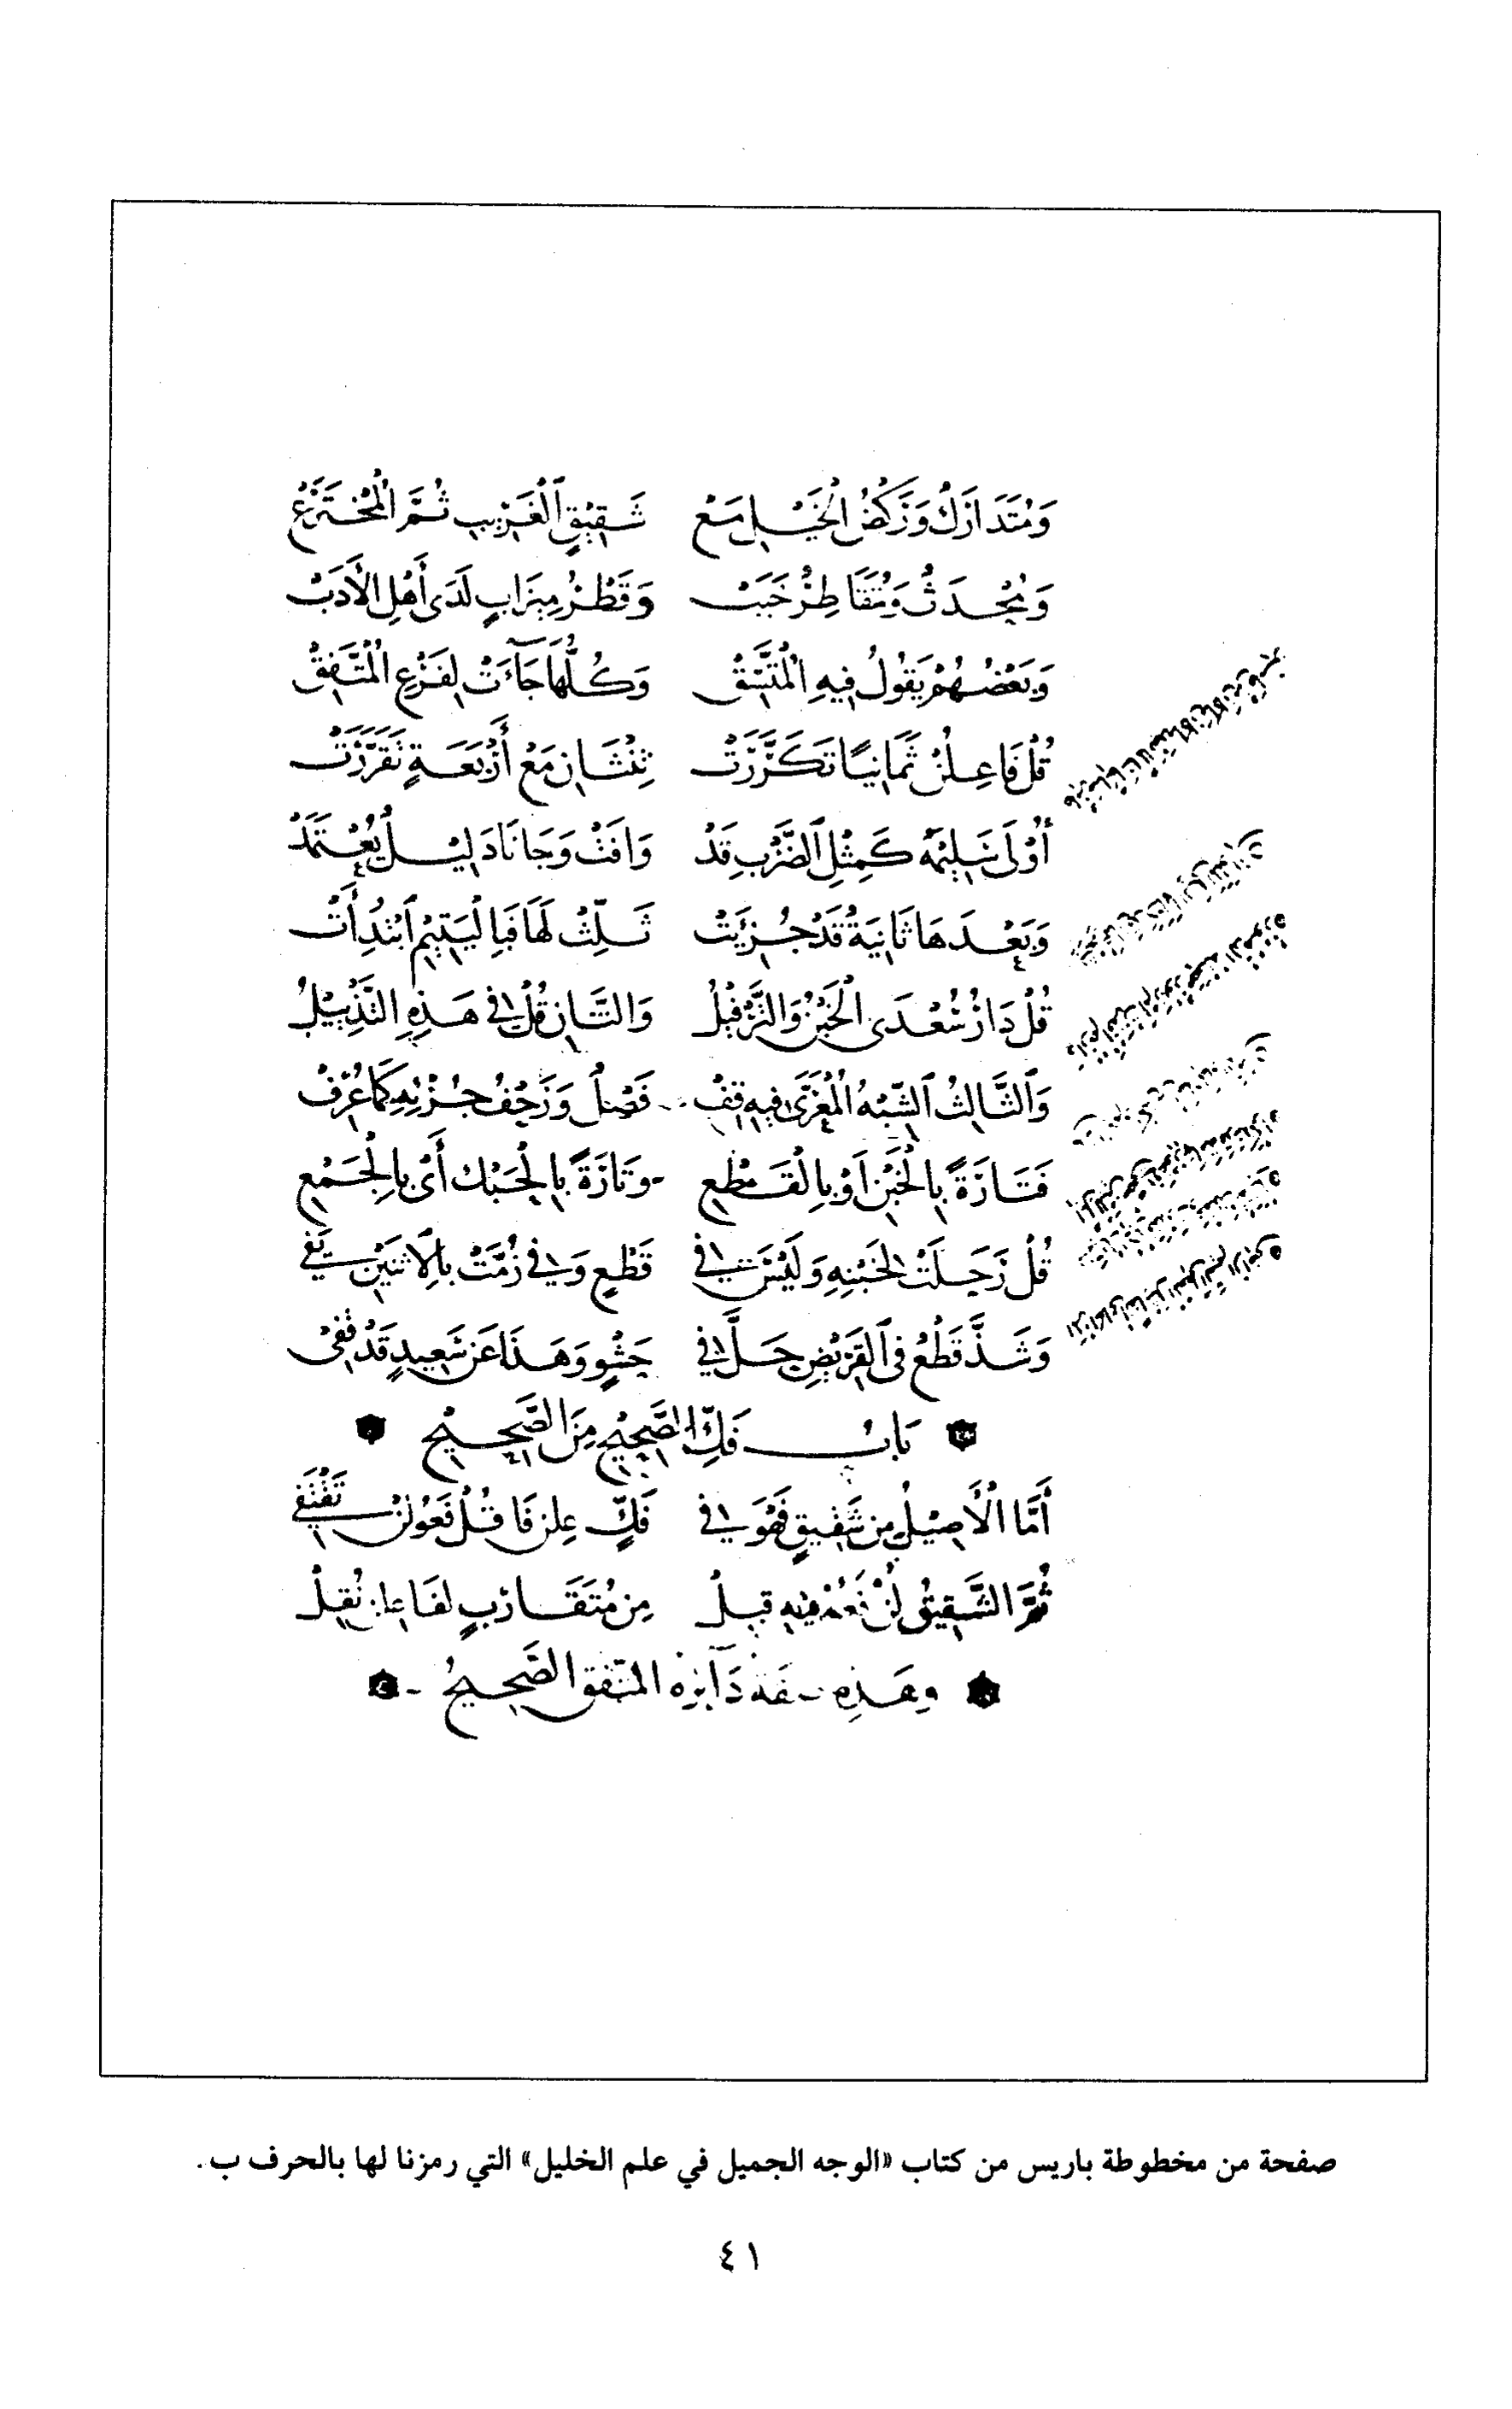 وَمُتَدَارَكٌ وَرَكْضُ الْخَيْلِ مَعْ شَقِيقٍ الْغَرِيبِ ثُمَّ الْمُخْتَرَعْ
وَمُحْدَثٌ وَمُتَقَاطِرٌ خَبَبْ وَقَطْرُ مِيزَابٍ لَدَى أَهْلِ الْأَدَبْ
وَبَعْضُهُمْ يَقُولُ فِيهِ الْمُتَّسِقْ وَكُلُّهَا جَآءَتْ لِفَرْعِ الْمُتَّفِقْ
قُلْ فَاعِلُنْ ثَمَانِيًا تَكَرَّرَتْ ثِنْتَانِ مَعْ أَرْبَعَةٍ تَقَرَّرَتْ
أُوْلَى سَلِيمَةٌ كَمِثْلِ الضَّرْبِ قَدْ وَافَتْ وَجَانَا دَلِيْلٌ يُعْتَمَدْ
وَبَعْدَهَا ثَانِيَةٌ قَدْ جُزِئَتْ ثَلِّثْ لَهَا فَبِالْيَتِيْمِ ابْتُدِأَتْ
قُلْ دَارُ سُعْدَى الْخَبْنُ وَالتَّرْفِيْلُ وَالثَّانِ قُلْ فِي هَذِهِ التَّذْيِيْلُ
وَالثَّالِثُ الشِّبْهُ الْمُعَرَّى فِيهِ قِفْ فَصْلٌ وَزَحْفُ جُزْئِهِ كَمَا عُرِفْ
فَتَارَةً بِالْخَبْنِ أَوْ بِالْقَطْعِ وَتَارَةً بِالْحَبْكِ أَيْ بِالْجَمْعِ
قُلْ رَحَلَتْ لِخَبْنِهِ وَلَيْسَ فِي قَطْعٍ وَفِي زُمَّتْ بِالِاثْنَيْنِ يَفِي
وَشَذَّ قَطْعٌ فِي الْقَرِيْضِ حَلَّ فِي حَشْوٍ وَهَذَا عَنْ سَعِيدٍ قَدْ قُفِيْ
بَابُ فَكِّ الصَّحِيْحِ مِنَ الصَّحِيْحِ
أَمَّا الْأَصِيْلُ مِنْ شَقِيقٍ فَهْوَ فِي فَكِّ عِلُنْ فَا قُلْ فَعُوْلُنْ تَقْتَفِي
ثُمَّ الشَّقِيقُ لُنْ فَعُو فِيهِ قِبِلْ مِنْ مُتَقَارَبٍ لِفَاعِلُنْ نُقِلْ
وهَذِهِ صفة دَآئِرة المتّفق الصَّحِيحُ
صفحة من مخطوطة باريس من كتاب «الوجه الجميل في علم الخليل» التي رمزنا لها بالحرف ب .
٤١